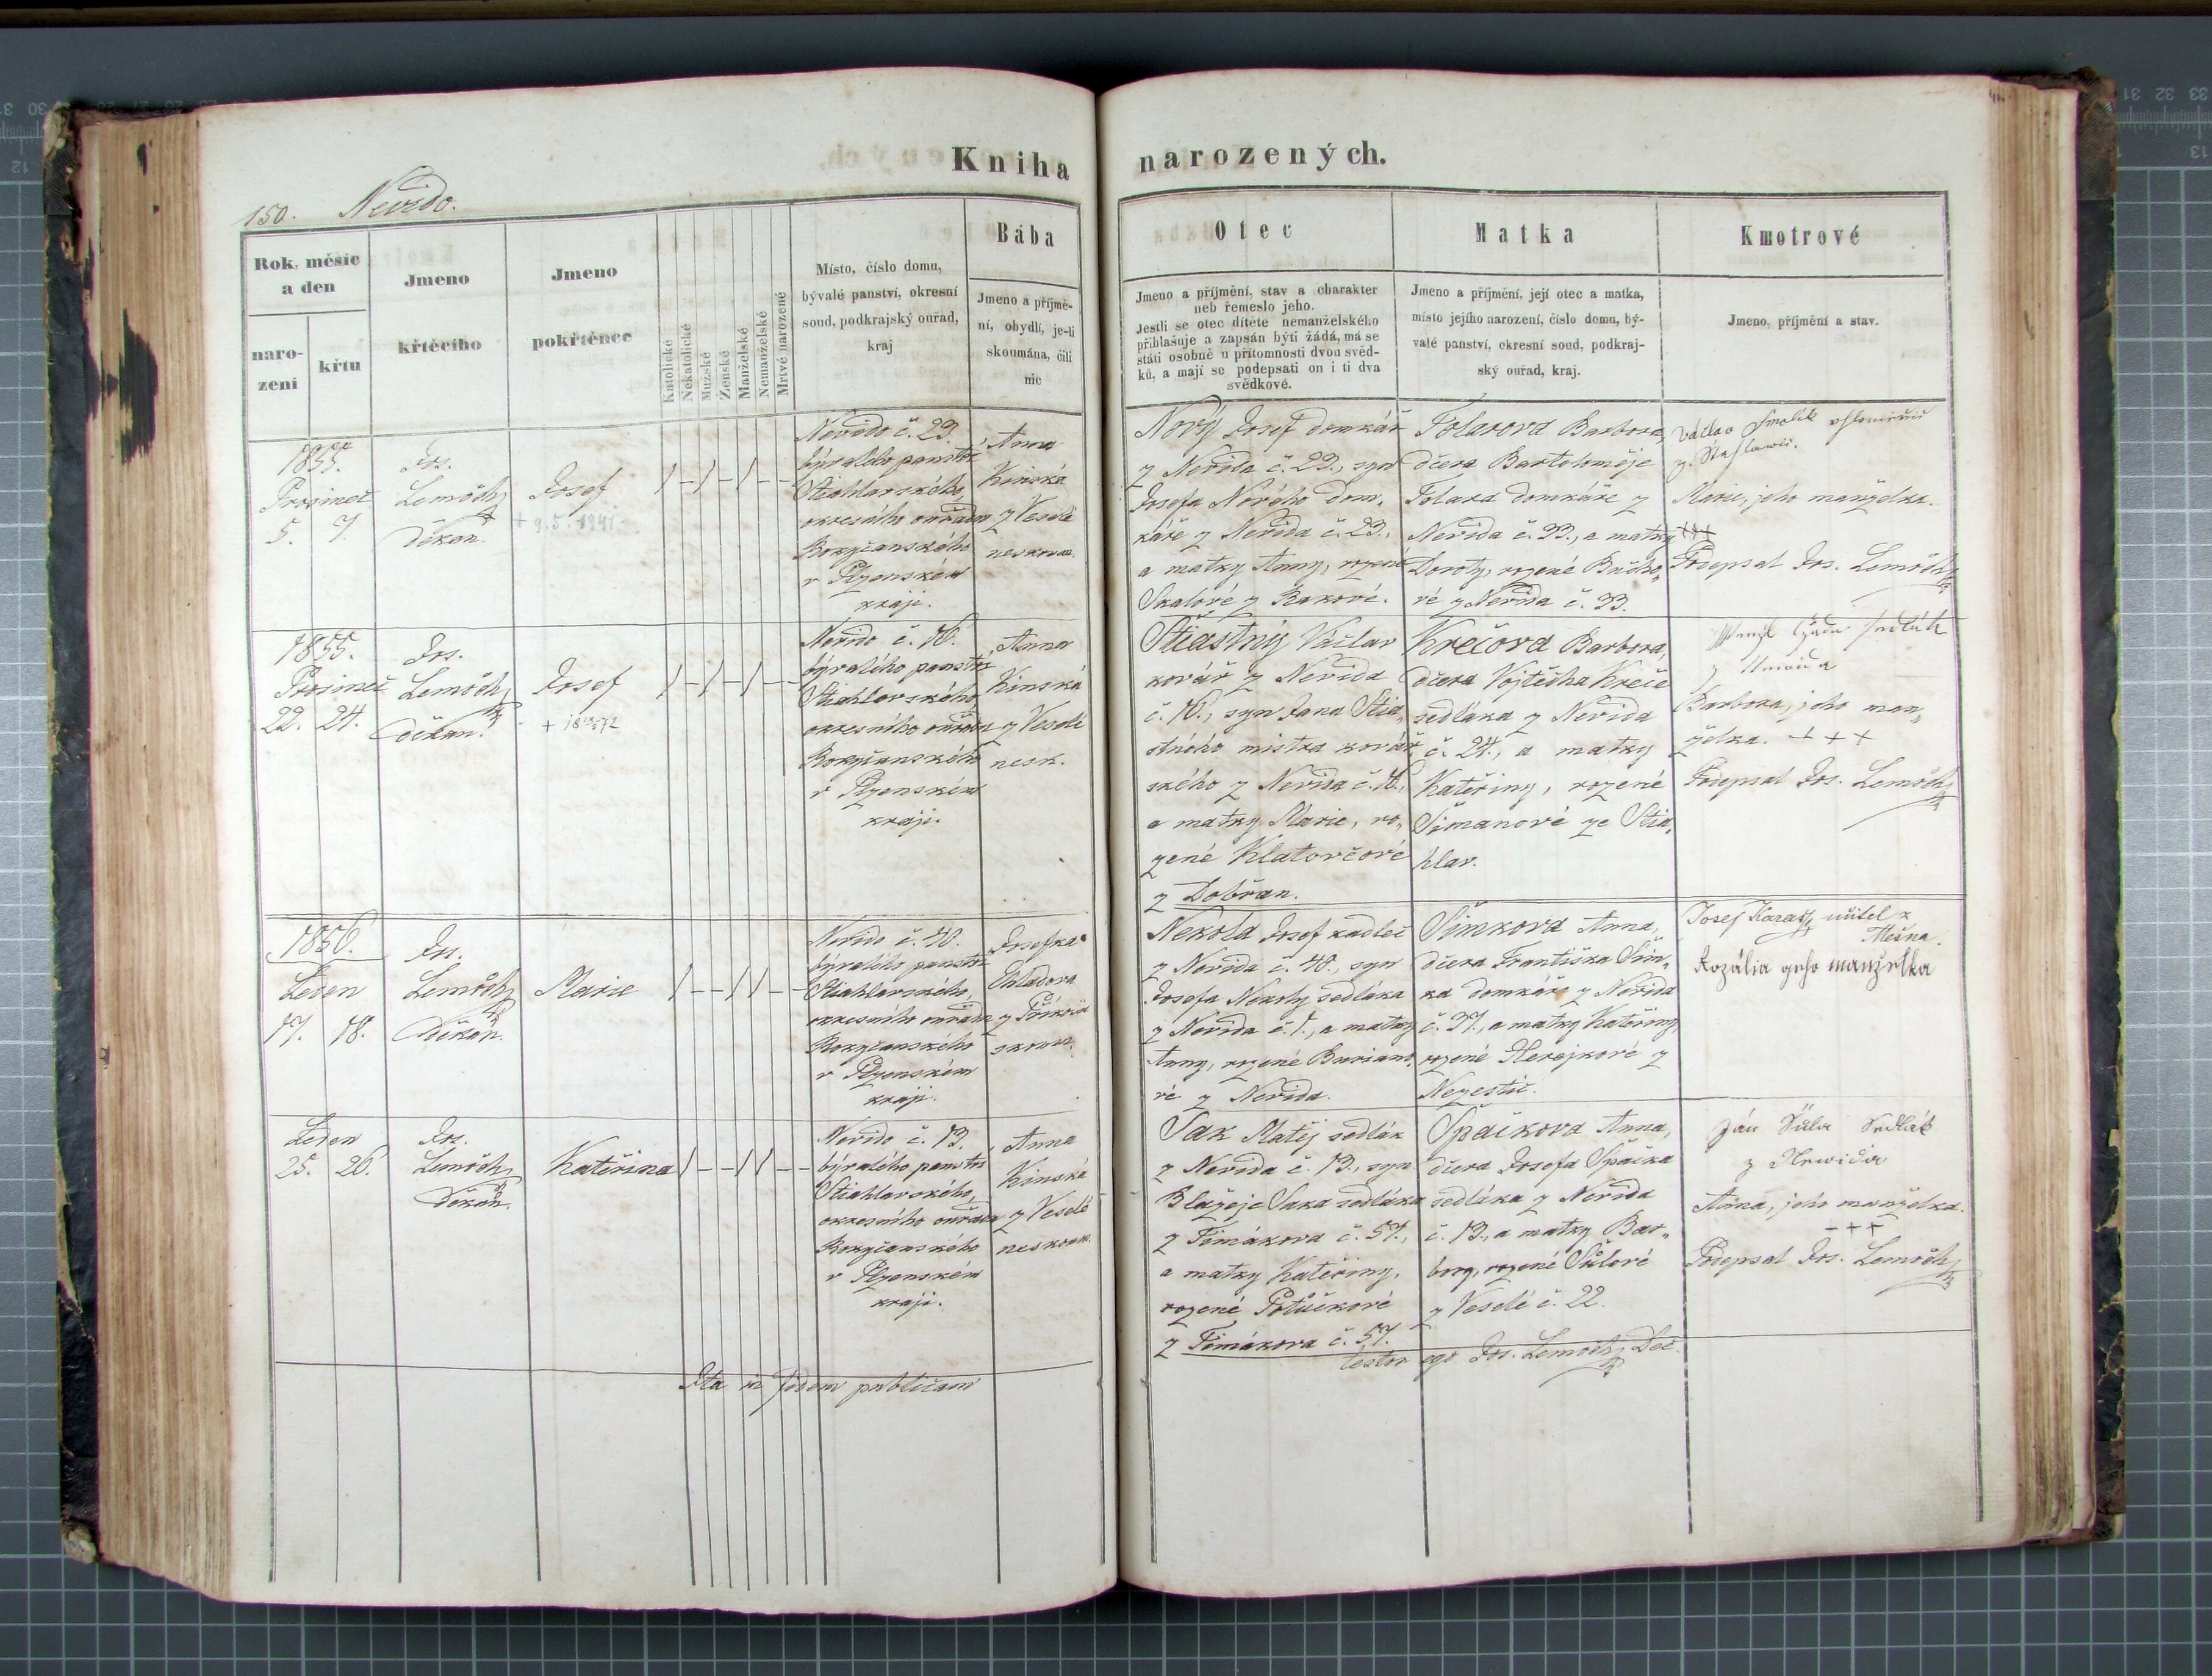 Kniha narozených.
150. Nevido.
Rok, měsíc
a den
naro-
zení
křtu
Jmeno
křtěcího
Jmeno
pokřtěnce
Katolické
Nekatolické
Mužské
Ženské
Manželské
Nemanželské
Mrtvě narozené
Místo, číslo domu,
bývalé panství, okresní
soud, podkrajský ouřad,
kraj
Bába
Jmeno a příjmě-
ní, obydlí, je-li
skoumána, čili
nic
Otec
Jmeno a příjmění, stav a charakter
neb řemeslo jeho.
Jestli se otec dítěte nemanželského
přihlašuje a zapsán býti žádá, má se
státi osobně u přítomnosti dvou svěd-
ků, a mají se podepsati on i ti dva
svědkové.
Matka
Jmeno a příjmění, její otec a matka,
místo jejího narození, číslo domu, bý-
valé panství, okresní soud, podkraj-
ský ouřad, kraj.
Kmotrové
Jmeno, příjmění a stav.
1855.
Prosinec
5. 7.
Jos.
Lemoch
děkan.
Josef
+ 9.5.1941
/ – / – / – –
Nevido č. 29.
bývalého panství
Štiahlavského,
okresního ouřadu
Rokyčanského
v Plzenském
kraji.
Anna
Kinská
z Veselé
neskoum.
Nový Josef domkář
z Nevida č. 29., syn
Josefa Nového dom-
káře z Nevida č. 29.,
a matky Anny, rozené
Skalové z Rakové.
Tolarova Barbora,
dčera Bartoloměje
Tolara domkáře z
Nevida č. 33., a matky
Doroty, rozené Bucho-
vé z Nevida č. 33.
Václav Smolík
z Stahlawic.
Marie, jeho manželka.
+++
Podepsal Jos. Lemoch
1855.
Prosinec
22. 24.
Jos.
Lemoch
děkan.
Josef
/ – / – / – –
Nevido č. 16.
bývalého panství
Štiahlavského,
okresního ouřadu
Rokyčanského
v Plzenském
kraji.
Anna
Kinská
z Veselé
nesk.
Štiastný Václav
kovář z Nevida
č. 16., syn Jana Štia-
stného mistra kovář-
ského z Nevida č. 16.,
a matky Marie, ro-
zené Klatovčové
z Dobřan.
Krečova Barbora,
dčera Vojtěcha Kreče
sedláka z Nevida
č. 24., a matky
Kateřiny, rozené
Šimanové ze Štia-
hlav.
sedlák
z Newida
Barbora, jeho man-
želka. + + +
Podepsal Jos. Lemoch
1856.
Leden
17. 18.
Jos.
Lemoch
děkan.
Marie
/ – – / / – –
Nevido č. 40.
bývalého panství
Štiahlavského,
okresního ouřadu
Rokyčanského
v Plzenském
kraji.
Josefka
Chladova
z Příkosic
skoum.
Nekola Josef kadleč
z Nevida č. 40., syn
Josefa Nekoly sedláka
z Nevida č. 1., a matky
Anny, rozené Buriano-
vé z Nevida.
Šimkova Anna,
dčera Františka Šim-
ka domkáře z Nevida
č. 37., a matky Kateřiny,
rozené Herejkové z
Nezvěstic.
Josef Karas, učitel z
Mešna.
Rozália geho manželka
Leden
25. 26.
Jos.
Lemoch
děkan.
Kateřina
/ – – / / – –
Nevido č. 13.
bývalého panství
Štiahlavského,
okresního ouřadu
Rokyčanského
v Plzenském
kraji.
Anna
Kinská
z Veselé
neskoum.
Sak Matěj sedlák
z Nevida č. 13., syn
Blažeje Saka sedláka
z Timákova č. 57.,
a matky Kateřiny,
rozené Potůčkové
z Timákova č. 57.
Špačkova Anna,
dčera Josefa Špačka
sedláka z Nevida
č. 13., a matky Bar-
bory, rozené Šůlové
z Veselé č. 22.
Ján Šůla Sedlák
z Newida
Anna, jeho manželka.
– + +
Podepsal Jos. Lemoch
Ita in fidem publicam testor ego Jos. Lemoch, Dec.